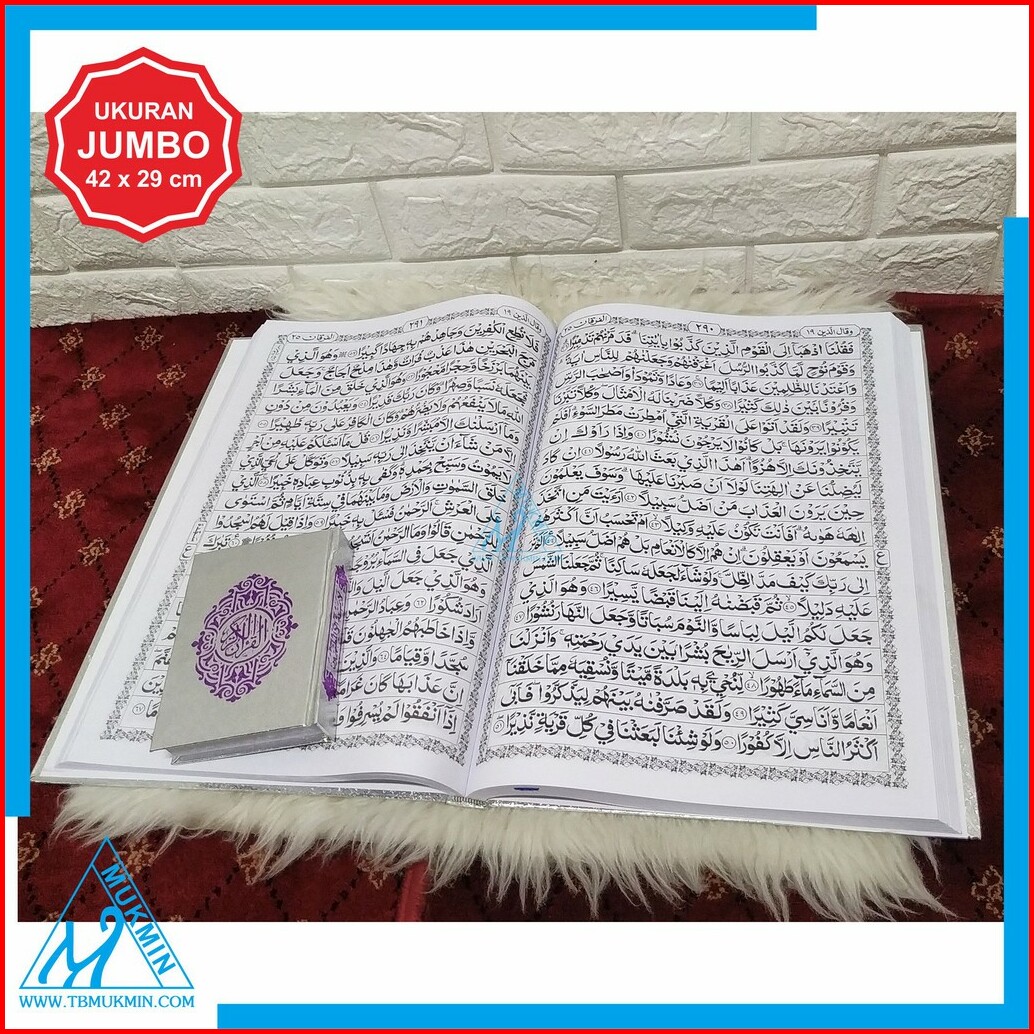 UKURAN
JUMBO
42 x 29 cm
وقال الذين ١٩
٢٩٠
الفرقان ٢٥
فَقُلْنَا اذْهَبَا اِلَى الْقَوْمِ الَّذِيْنَ كَذَّبُوْا بِاٰيٰتِنَا ۗ فَدَمَّرْنٰهُمْ تَدْمِيْرًا
وَقَوْمَ نُوْحٍ لَّمَّا كَذَّبُوا الرُّسُلَ اَغْرَقْنٰهُمْ وَجَعَلْنٰهُمْ لِلنَّاسِ اٰيَةً
وَاَعْتَدْنَا لِلظّٰلِمِيْنَ عَذَابًا اَلِيْمًا وَعَادًا وَّثَمُوْدَا۟ وَاَصْحٰبَ الرَّسِّ
وَقُرُوْنًا بَيْنَ ذٰلِكَ كَثِيْرًا وَكُلًّا ضَرَبْنَا لَهُ الْاَمْثَالَ وَكُلًّا تَبَّرْنَا
تَتْبِيْرًا وَلَقَدْ اَتَوْا عَلَى الْقَرْيَةِ الَّتِيْٓ اُمْطِرَتْ مَطَرَ السَّوْءِ اَفَلَمْ
يَكُوْنُوْا يَرَوْنَهَا بَلْ كَانُوْا لَا يَرْجُوْنَ نُشُوْرًا وَاِذَا رَاَوْكَ اِنْ
يَّتَّخِذُوْنَكَ اِلَّا هُزُوًا اَهٰذَا الَّذِيْ بَعَثَ اللّٰهُ رَسُوْلًا اِنْ كَادَ
لَيُضِلُّنَا عَنْ اٰلِهَتِنَا لَوْلَآ اَنْ صَبَرْنَا عَلَيْهَا وَسَوْفَ يَعْلَمُوْنَ
حِيْنَ يَرَوْنَ الْعَذَابَ مَنْ اَضَلُّ سَبِيْلًا اَرَءَيْتَ مَنِ اتَّخَذَ
اِلٰهَهٗ هَوٰىهُ اَفَاَنْتَ تَكُوْنُ عَلَيْهِ وَكِيْلًا اَمْ تَحْسَبُ اَنَّ اَكْثَرَهُمْ
يَسْمَعُوْنَ اَوْ يَعْقِلُوْنَ اِنْ هُمْ اِلَّا كَالْاَنْعَامِ بَلْ هُمْ اَضَلُّ سَبِيْلًا اَلَمْ تَرَ
اِلٰى رَبِّكَ كَيْفَ مَدَّ الظِّلَّ وَلَوْ شَآءَ لَجَعَلَهٗ سَاكِنًا ثُمَّ جَعَلْنَا الشَّمْسَ
عَلَيْهِ دَلِيْلًا ٤٥ ثُمَّ قَبَضْنٰهُ اِلَيْنَا قَبْضًا يَّسِيْرًا ٤٦ وَهُوَ الَّذِيْ
جَعَلَ لَكُمُ الَّيْلَ لِبَاسًا وَّالنَّوْمَ سُبَاتًا وَّجَعَلَ النَّهَارَ نُشُوْرًا ٤٧
وَهُوَ الَّذِيْٓ اَرْسَلَ الرِّيٰحَ بُشْرًا بَيْنَ يَدَيْ رَحْمَتِهٖ وَاَنْزَلْنَا
مِنَ السَّمَآءِ مَآءً طَهُوْرًا ٤٨ لِّنُحْيِ بِهٖ بَلْدَةً مَّيْتًا وَّنُسْقِيَهٗ مِمَّا خَلَقْنَآ
اَنْعَامًا وَّاَنَاسِيَّ كَثِيْرًا ٤٩ وَلَقَدْ صَرَّفْنٰهُ بَيْنَهُمْ لِيَذَّكَّرُوْا فَاَبٰٓى
اَكْثَرُ النَّاسِ اِلَّا كُفُوْرًا ٥٠ وَلَوْ شِئْنَا لَبَعَثْنَا فِيْ كُلِّ قَرْيَةٍ نَّذِيْرًا ٥١
وقال الذين ١٩
٢٩١
الفرقان ٢٥
فَلَا تُطِعِ الْكٰفِرِيْنَ وَجَاهِدْهُمْ بِهٖ جِهَادًا كَبِيْرًا وَهُوَ الَّذِيْ
مَرَجَ الْبَحْرَيْنِ هٰذَا عَذْبٌ فُرَاتٌ وَّهٰذَا مِلْحٌ اُجَاجٌ وَجَعَلَ
بَيْنَهُمَا بَرْزَخًا وَّحِجْرًا مَّحْجُوْرًا وَهُوَ الَّذِيْ خَلَقَ مِنَ الْمَآءِ بَشَرًا
فَجَعَلَهٗ نَسَبًا وَّصِهْرًا وَكَانَ رَبُّكَ قَدِيْرًا وَيَعْبُدُوْنَ مِنْ دُوْنِ
اللّٰهِ مَا لَا يَنْفَعُهُمْ وَلَا يَضُرُّهُمْ وَكَانَ الْكَافِرُ عَلٰى رَبِّهٖ ظَهِيْرًا
وَمَآ اَرْسَلْنٰكَ اِلَّا مُبَشِّرًا وَّنَذِيْرًا قُلْ مَآ اَسْـَٔلُكُمْ عَلَيْهِ مِنْ اَجْرٍ
اِلَّا مَنْ شَآءَ اَنْ يَّتَّخِذَ اِلٰى رَبِّهٖ سَبِيْلًا وَتَوَكَّلْ عَلَى الْحَيِّ الَّذِيْ
لَا يَمُوْتُ وَسَبِّحْ بِحَمْدِهٖ وَكَفٰى بِهٖ بِذُنُوْبِ عِبَادِهٖ خَبِيْرًا الَّذِيْ
خَلَقَ السَّمٰوٰتِ وَالْاَرْضَ وَمَا بَيْنَهُمَا فِيْ سِتَّةِ اَيَّامٍ ثُمَّ اسْتَوٰى
عَلَى الْعَرْشِ اَلرَّحْمٰنُ فَسْـَٔلْ بِهٖ خَبِيْرًا وَاِذَا قِيْلَ لَهُمُ اسْجُدُوْا
قَالُوْا وَمَا الرَّحْمٰنُ
الَّذِيْ جَعَلَ فِى السَّمَآءِ
وَهُوَ الَّذِيْ جَعَلَ الَّيْلَ
اَرَادَ شُكُوْرًا ٦٢ وَعِبَادُ الرَّحْمٰنِ
وَّاِذَا خَاطَبَهُمُ الْجٰهِلُوْنَ
سُجَّدًا وَّقِيَامًا ٦٤ وَالَّذِيْنَ
اِنَّ عَذَابَهَا كَانَ غَرَامًا
اِذَآ اَنْفَقُوْا لَمْ يُسْرِفُوْا
٦٧
القرآن الكريم
MUKMIN
WWW.TBMUKMIN.COM